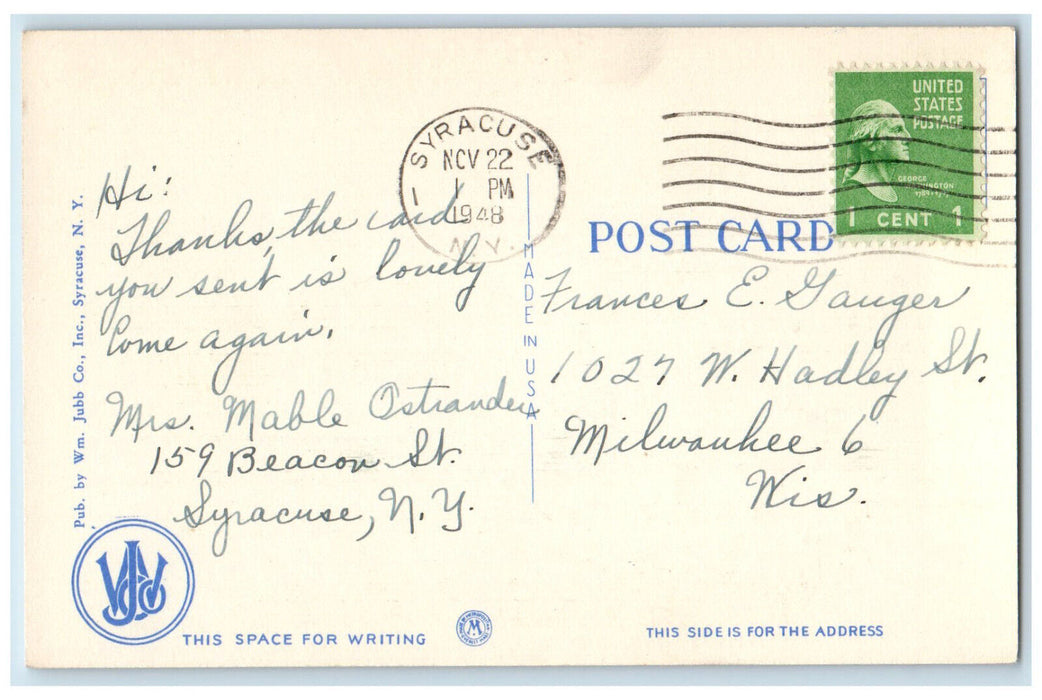 SYRACUSE
NOV 22
1 PM
1948
N.Y.
UNITED
STATES
POSTAGE
GEORGE
WASHINGTON
1 CENT 1
POST CARD
Hi:
Thanks, the card
you sent is lovely
Come again.
Mrs. Mable Ostrander
159 Beacon St.
Syracuse, N.Y.
MADE IN USA
Frances E. Gauger
1027 W. Hadley St.
Milwaukee 6
Wis.
Pub. by Wm. Jubb Co., Inc., Syracuse, N. Y.
THIS SPACE FOR WRITING
M
THIS SIDE IS FOR THE ADDRESS